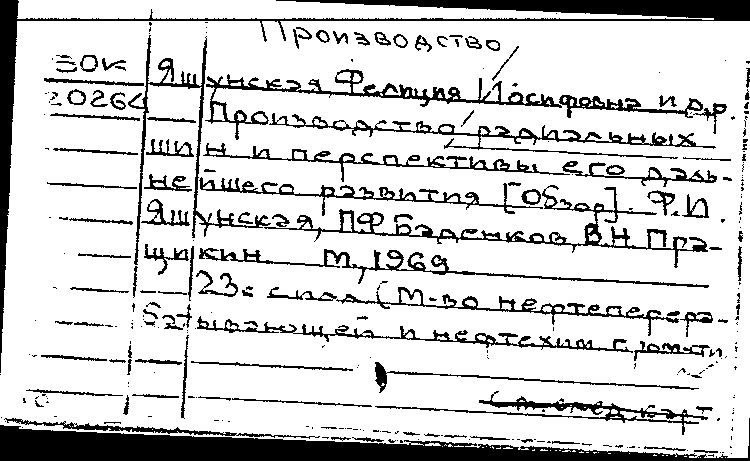 Производство
ЗОК Яшунская Фелиция Иосифовна и др.
20264 Производство радиальных
шин и перспективы его даль-
нейшего развития [Обзор]. Ф.И.
Яшунская, П.Ф. Баденков, В.Н. Пра-
щикин. М., 1969
23с с илл (М-во нефтеперера-
батывающей и нефтехим
См. след. карт.